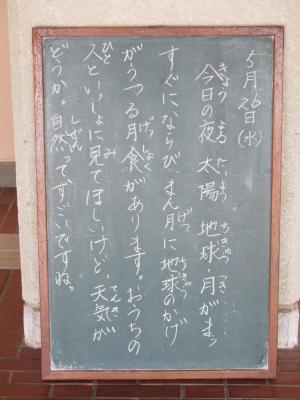 5月26日(水)
今日の夜、太陽・地球・月がまっ
すぐにならび、まん月に地球のかげ
がうつる月食があります。おうちの
人といっしょに見てほしいけど、天気が
どうか。自然って、すごいですね。